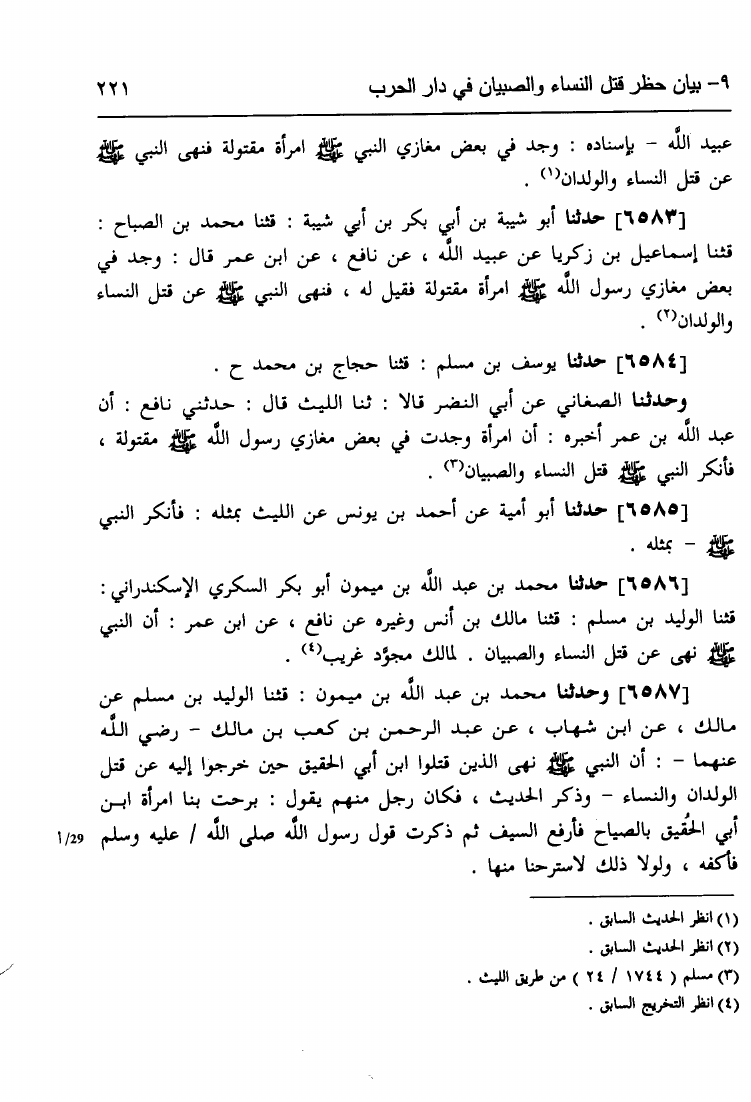 ٩- بيان حظر قتل النساء والصبيان في دار الحرب ٢٢١
عبيد الله - بإسناده : وجد في بعض مغازي النبي ﷺ امرأة مقتولة فنهى النبي ﷺ
عن قتل النساء والولدان(١) .
[٦٥٨٣] حدثنا أبو شيبة بن أبي بكر بن أبي شيبة : قثنا محمد بن الصباح :
قثنا إسماعيل بن زكريا عن عبيد الله ، عن نافع ، عن ابن عمر قال : وجد في
بعض مغازي رسول الله ﷺ امرأة مقتولة فقيل له ، فنهى النبي ﷺ عن قتل النساء
والولدان(٢) .
[٦٥٨٤] حدثنا يوسف بن مسلم : قثنا حجاج بن محمد ح .
وحدثنا الصغاني عن أبي النضر قالا : ثنا الليث قال : حدثني نافع : أن
عبد الله بن عمر أخبره : أن امرأة وجدت في بعض مغازي رسول الله ﷺ مقتولة ،
فأنكر النبي ﷺ قتل النساء والصبيان(٣) .
[٦٥٨٥] حدثنا أبو أمية عن أحمد بن يونس عن الليث بمثله : فأنكر النبي
ﷺ - بمثله .
[٦٥٨٦] حدثنا محمد بن عبد الله بن ميمون أبو بكر السكري الإسكندراني :
قثنا الوليد بن مسلم : قثنا مالك بن أنس وغيره عن نافع ، عن ابن عمر : أن النبي
ﷺ نهى عن قتل النساء والصبيان . لمالك مجوَّد غريب(٤) .
[٦٥٨٧] وحدثنا محمد بن عبد الله بن ميمون : قثنا الوليد بن مسلم عن
مالك ، عن ابن شهاب ، عن عبد الرحمن بن كعب بن مالك - رضي الله
عنهما - : أن النبي ﷺ نهى الذين قتلوا ابن أبي الحقيق حين خرجوا إليه عن قتل
الولدان والنساء - وذكر الحديث ، فكان رجل منهم يقول : برحت بنا امرأة ابن
أبي الحُقيق بالصياح فأرفع السيف ثم ذكرت قول رسول الله صلى الله / عليه وسلم 29/أ
فأكفه ، ولولا ذلك لاسترحنا منها .
(١) انظر الحديث السابق .
(٢) انظر الحديث السابق .
(٣) مسلم ( ١٧٤٤ / ٢٤ ) من طريق الليث .
(٤) انظر التخريج السابق .